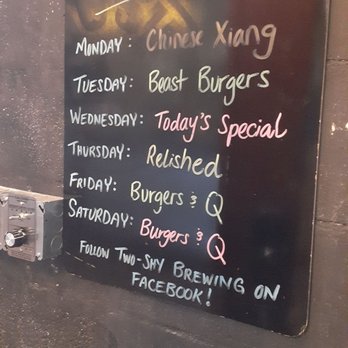 MONDAY: Chinese Xiang
TUESDAY: Beast Burgers
WEDNESDAY: Today's Special
THURSDAY: Relished
FRIDAY: Burgers & Q
SATURDAY: Burgers & Q
FOLLOW TWO-SHY BREWING ON
FACEBOOK!